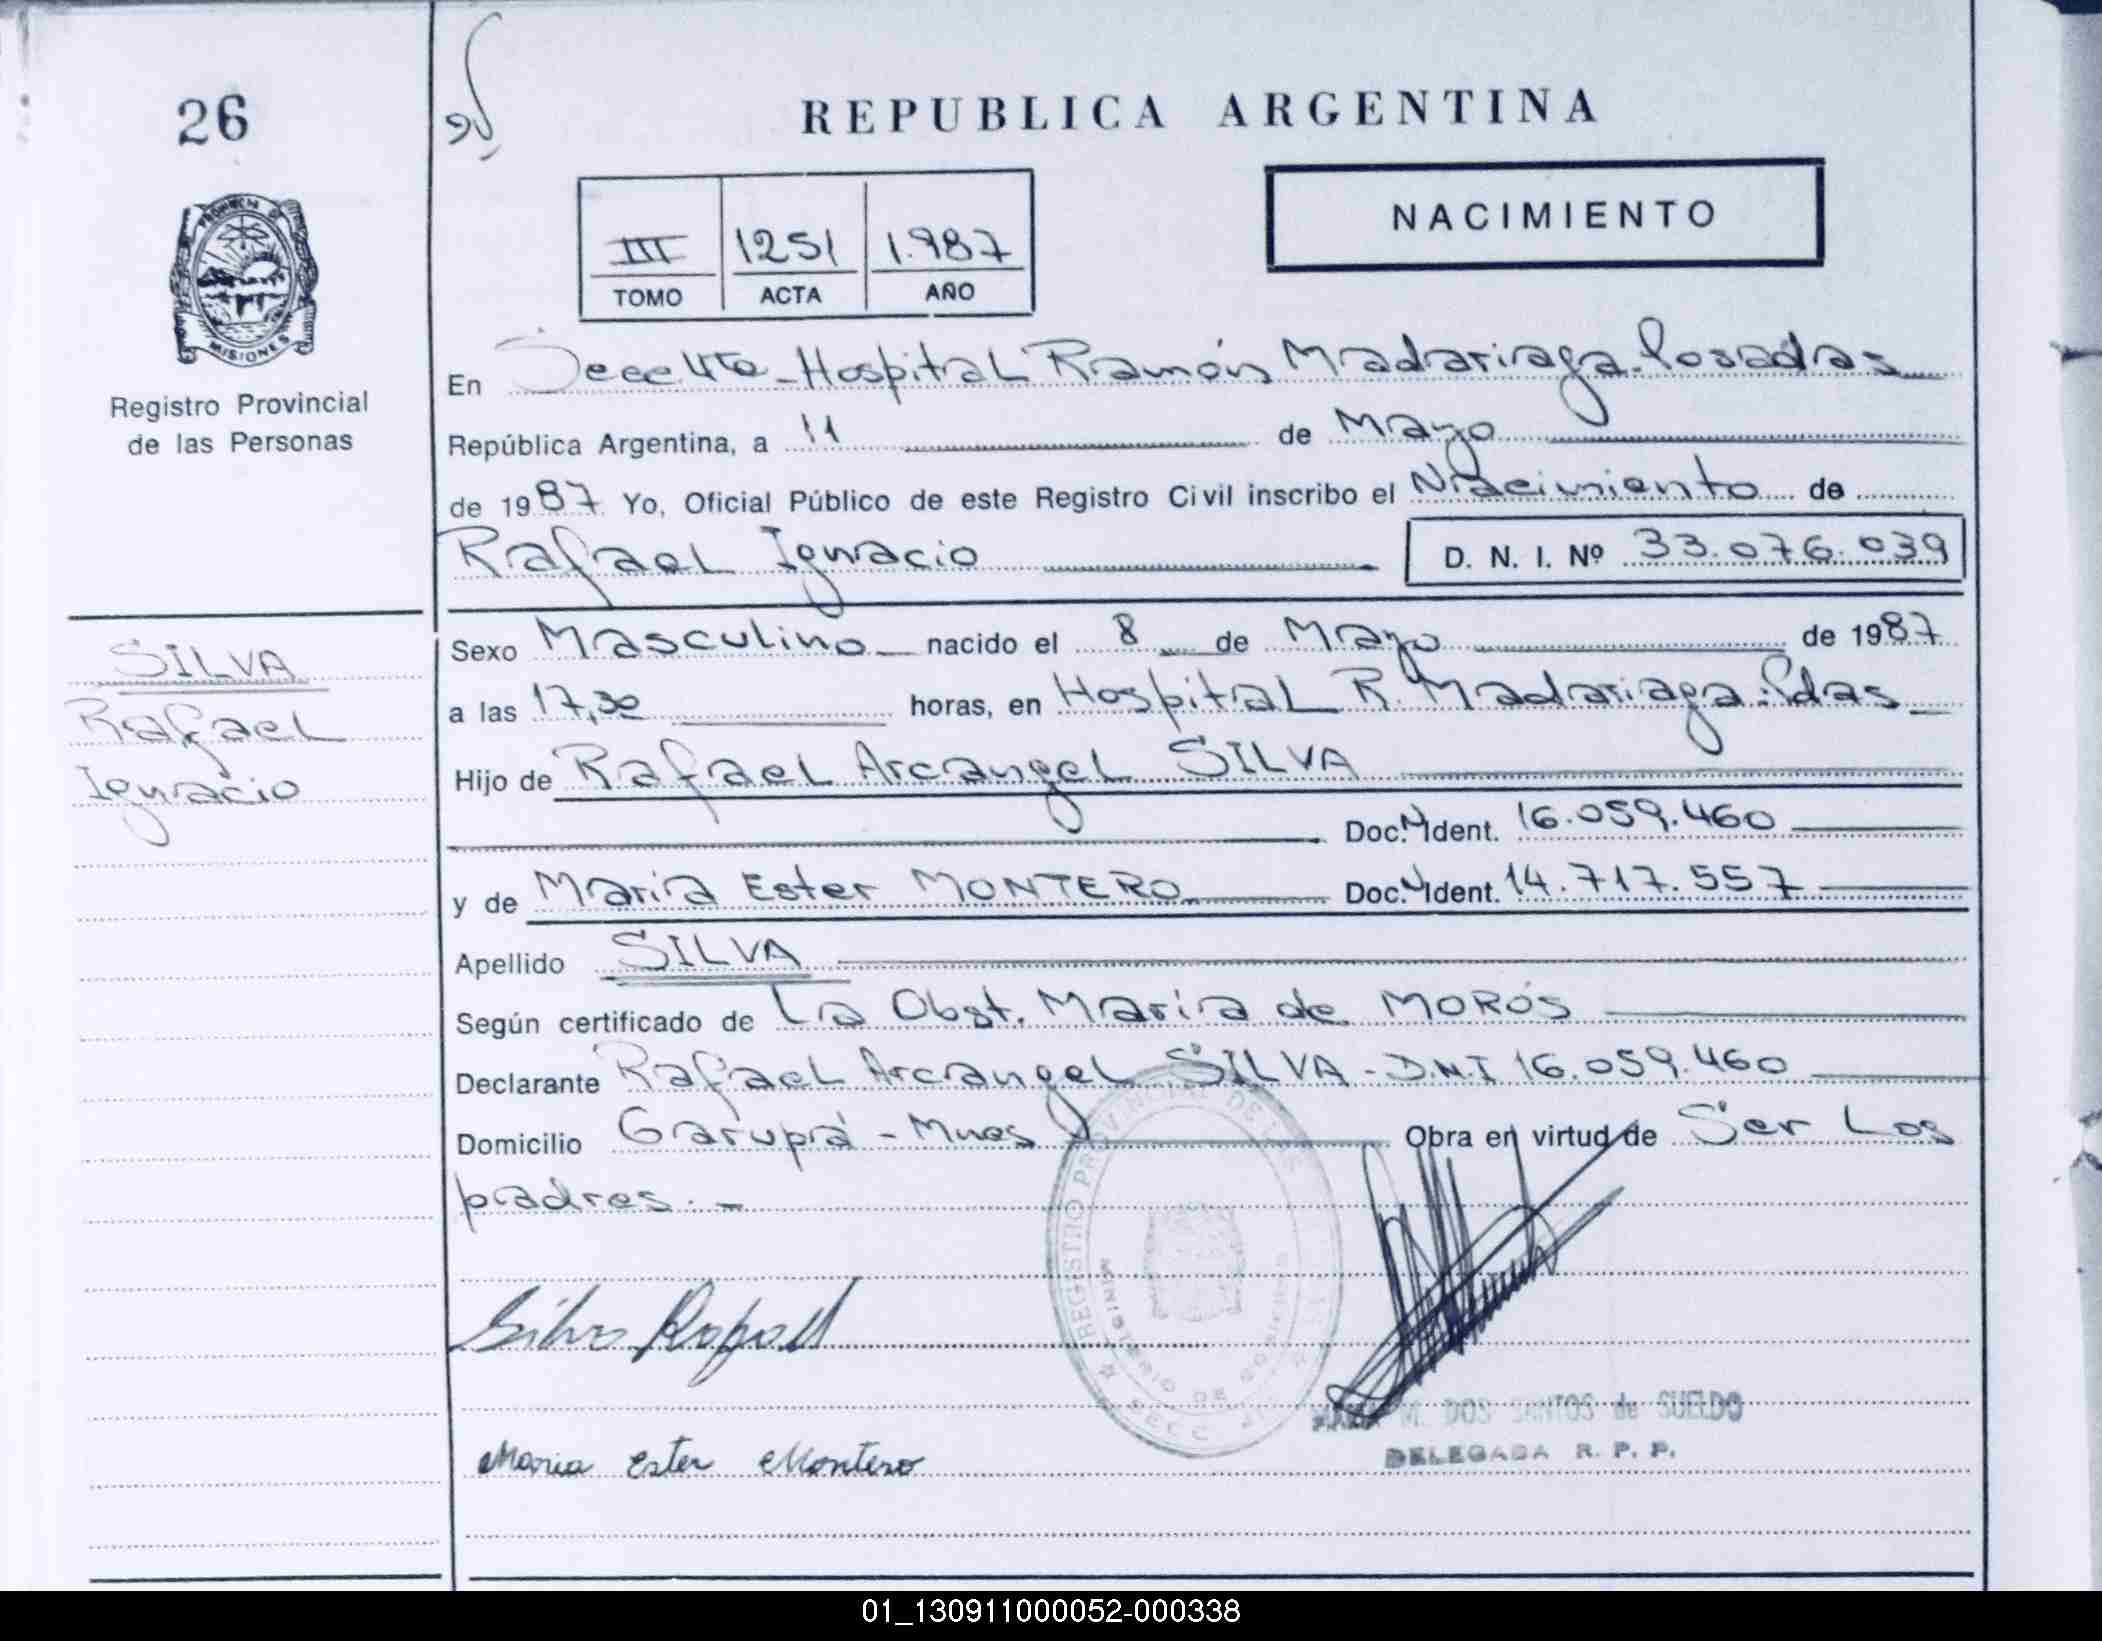 26
REPUBLICA ARGENTINA
NACIMIENTO
III 1251 1.987
TOMO ACTA AÑO
PROVINCIA DE
MISIONES
Registro Provincial
de las Personas
En Secc 4ta - Hospital Ramón Madariaga. Posadas
República Argentina, a 11 de Mayo
de 1987 Yo, Oficial Público de este Registro Civil inscribo el Nacimiento de
Rafael Ignacio D. N. I. Nº 33.076.039
SILVA
Rafael
Ignacio
Sexo Masculino nacido el 8 de Mayo de 1987
a las 17,30 horas, en Hospital R. Madariaga. Pdas
Hijo de Rafael Arcangel SILVA
Doc. Ident. 16.059.460
y de María Ester MONTERO Doc. Ident. 14.717.557
Apellido SILVA
Según certificado de La Obst. María de MORÓS
Declarante Rafael Arcangel SILVA - D.N.I 16.059.460
Domicilio Garupá - Mnes Obra en virtud de Ser Los
padres. -
REGISTRO PROVINCIAL DE LAS
MINISTERIO DE GOBIERNO
SECC
Silva Rafael
M. DOS SANTOS de SUELDO
DELEGADA R. P. P.
Maria Ester Montero
01_130911000052-000338